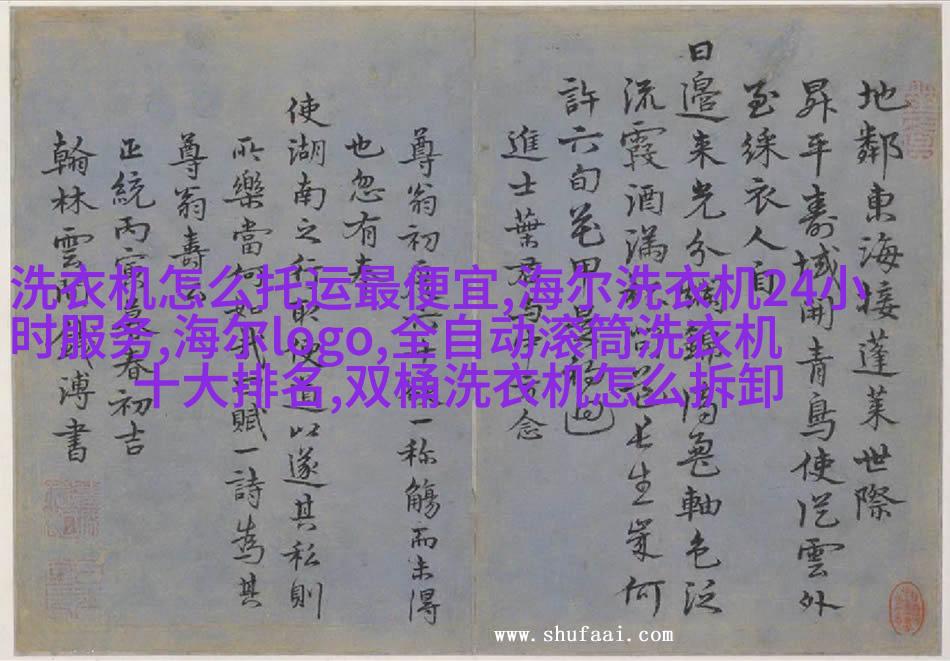 地鄰東海接蓬萊世際
昇平壽域開青鳥使從雲外
至綵衣人自
日邉来光分鸞軸色泛
流霞酒滿長生歲何
許六旬花甲過
進士葉君念
尊翁初一称觴而未得
也忽有奉
使湖南之行取便道以遂其私則
所樂當何如賦一詩為其
尊翁壽云
正統丙寅暮春初吉
翰林雲間錢溥書
洗衣机怎么托运最便宜,海尔洗衣机24小
时服务,海尔logo,全自动滚筒洗衣机
十大排名,双桶洗衣机怎么拆卸
www.shufaai.com